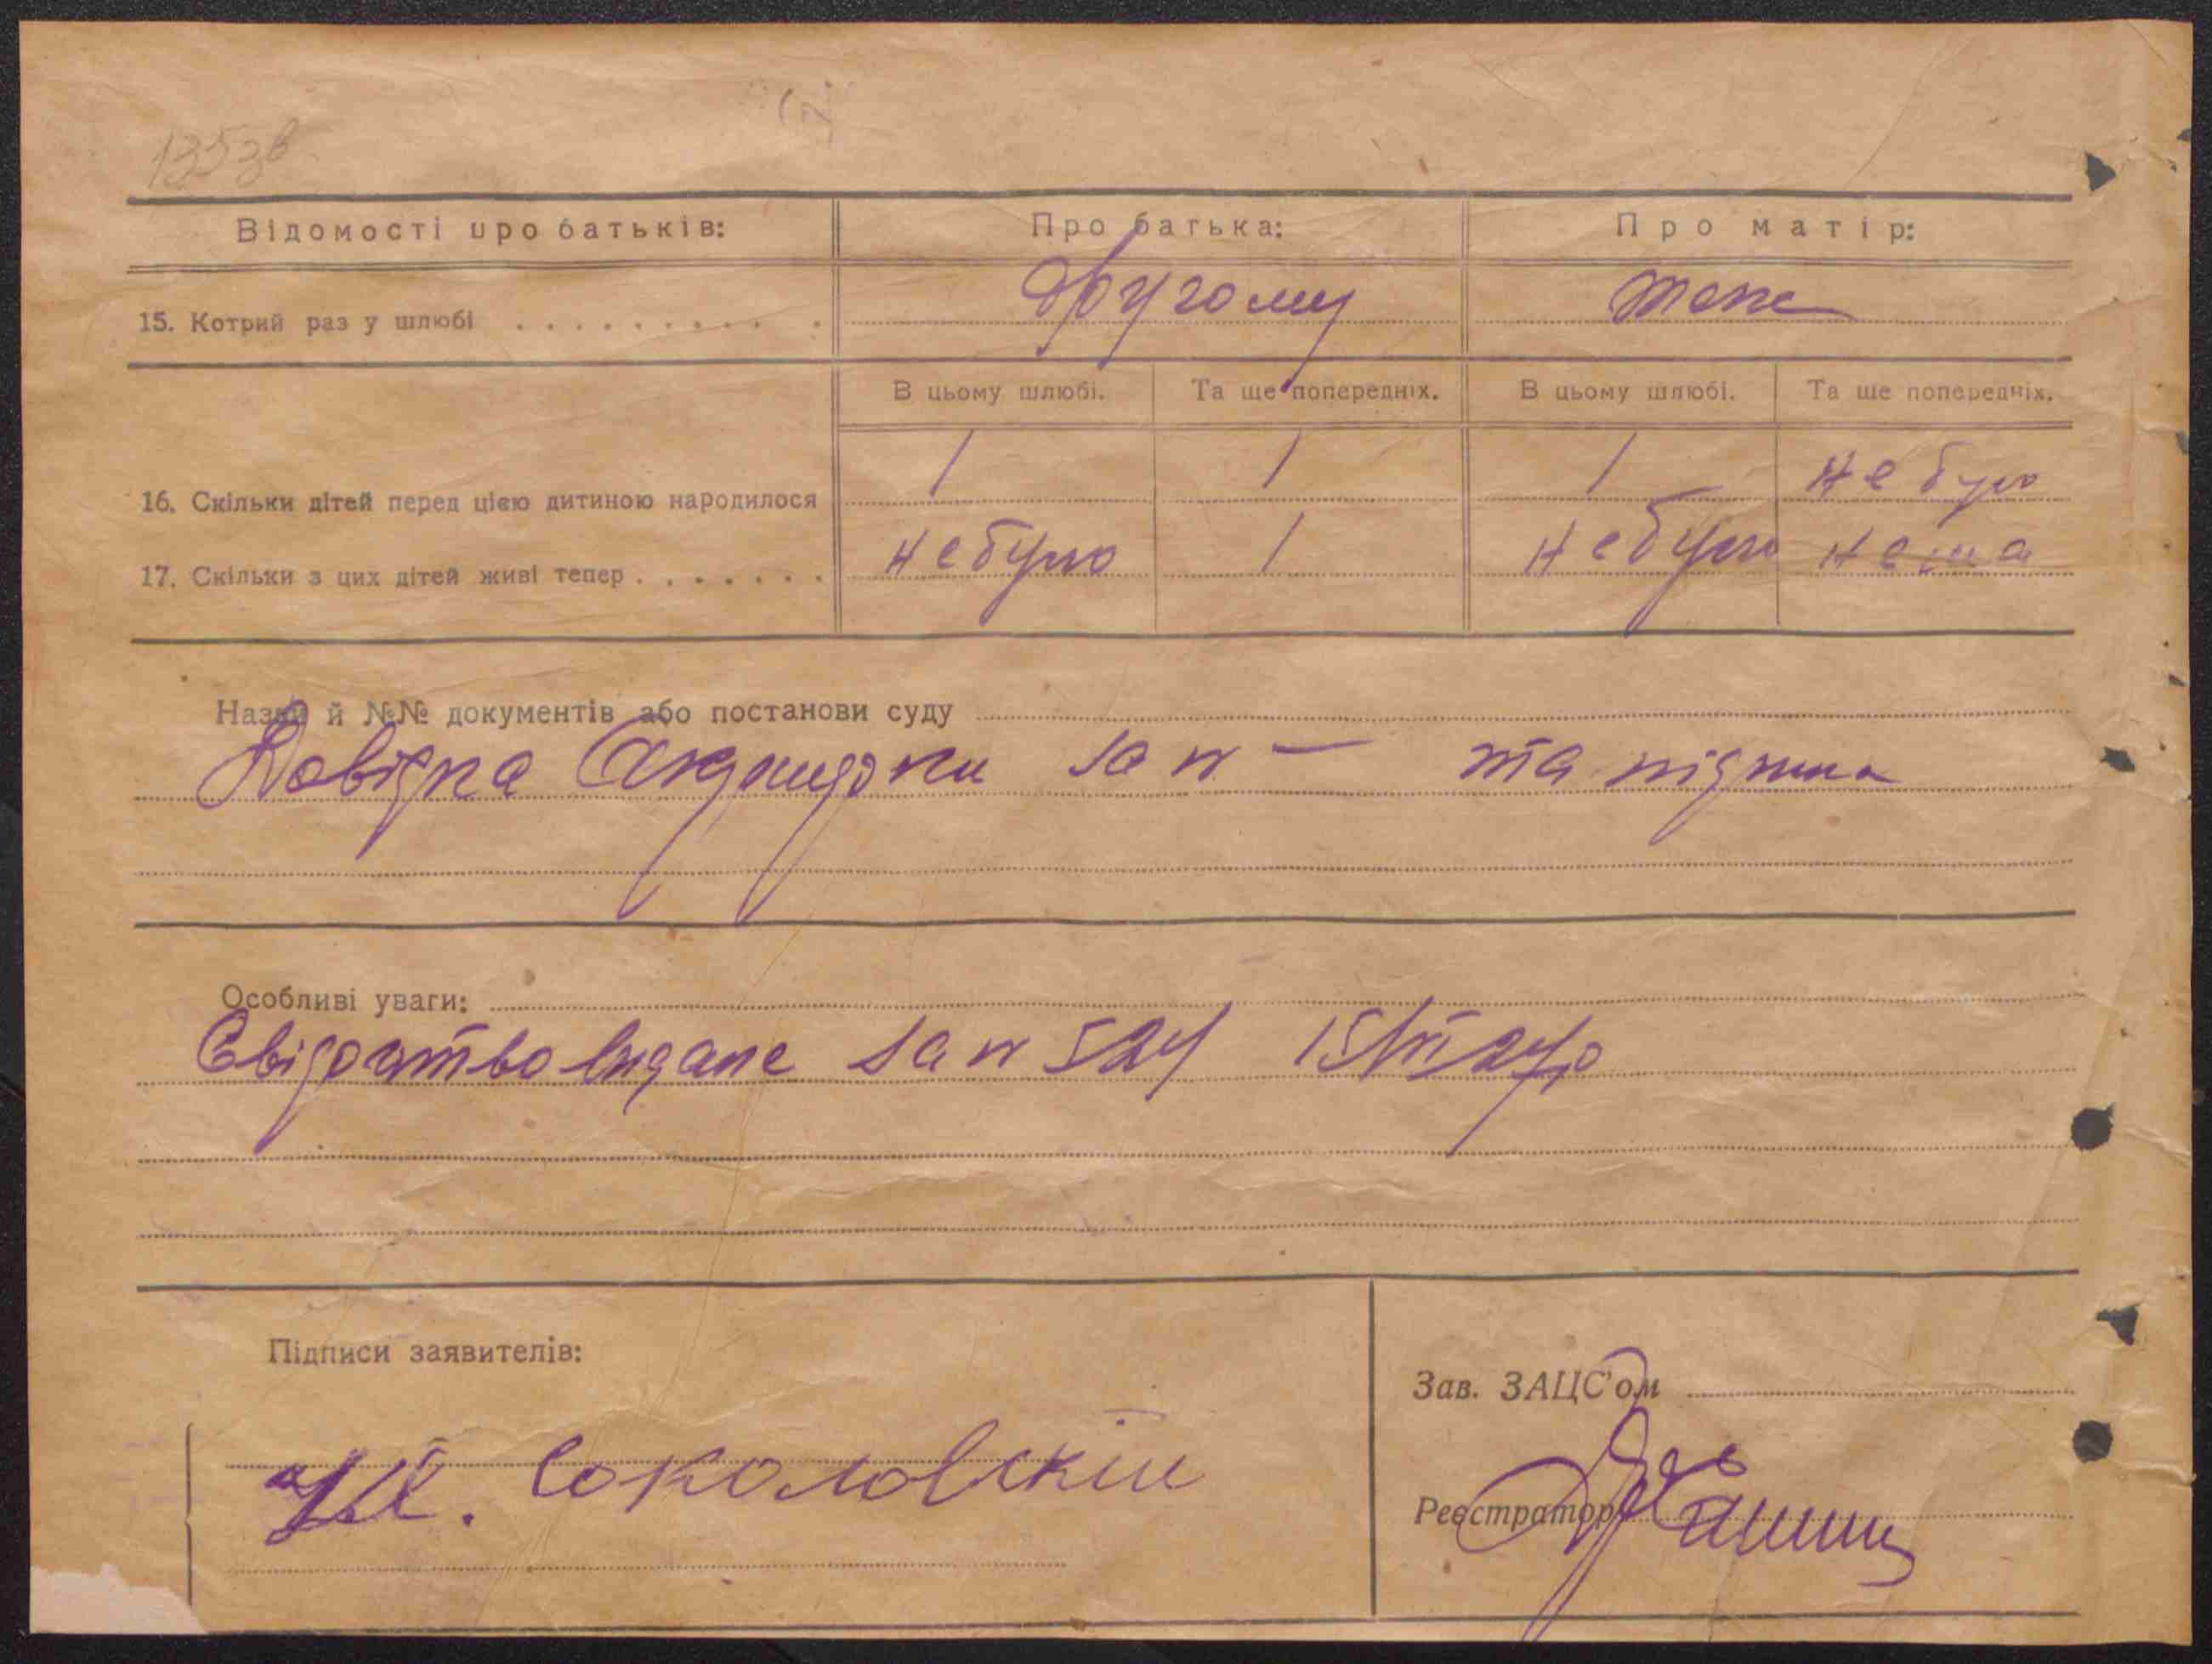 1353в
Відомості про батьків: Про батька: Про матір:
15. Котрий раз у шлюбі . . . . . . . . . . другому теж
В цьому шлюбі. Та ще попередніх. В цьому шлюбі. Та ще попередніх.
16. Скільки дітей перед цією дитиною народилося 1 1 1 не було
17. Скільки з цих дітей живі тепер . . . . . . . не було 1 не було нема
Назви й №№ документів або постанови суду
Довідка за № — та
Особливі уваги:
Свідоцтво видане за № 524
Підписи заявителів:
Зав. ЗАЦС'ом
Соколовскій
Реєстратор